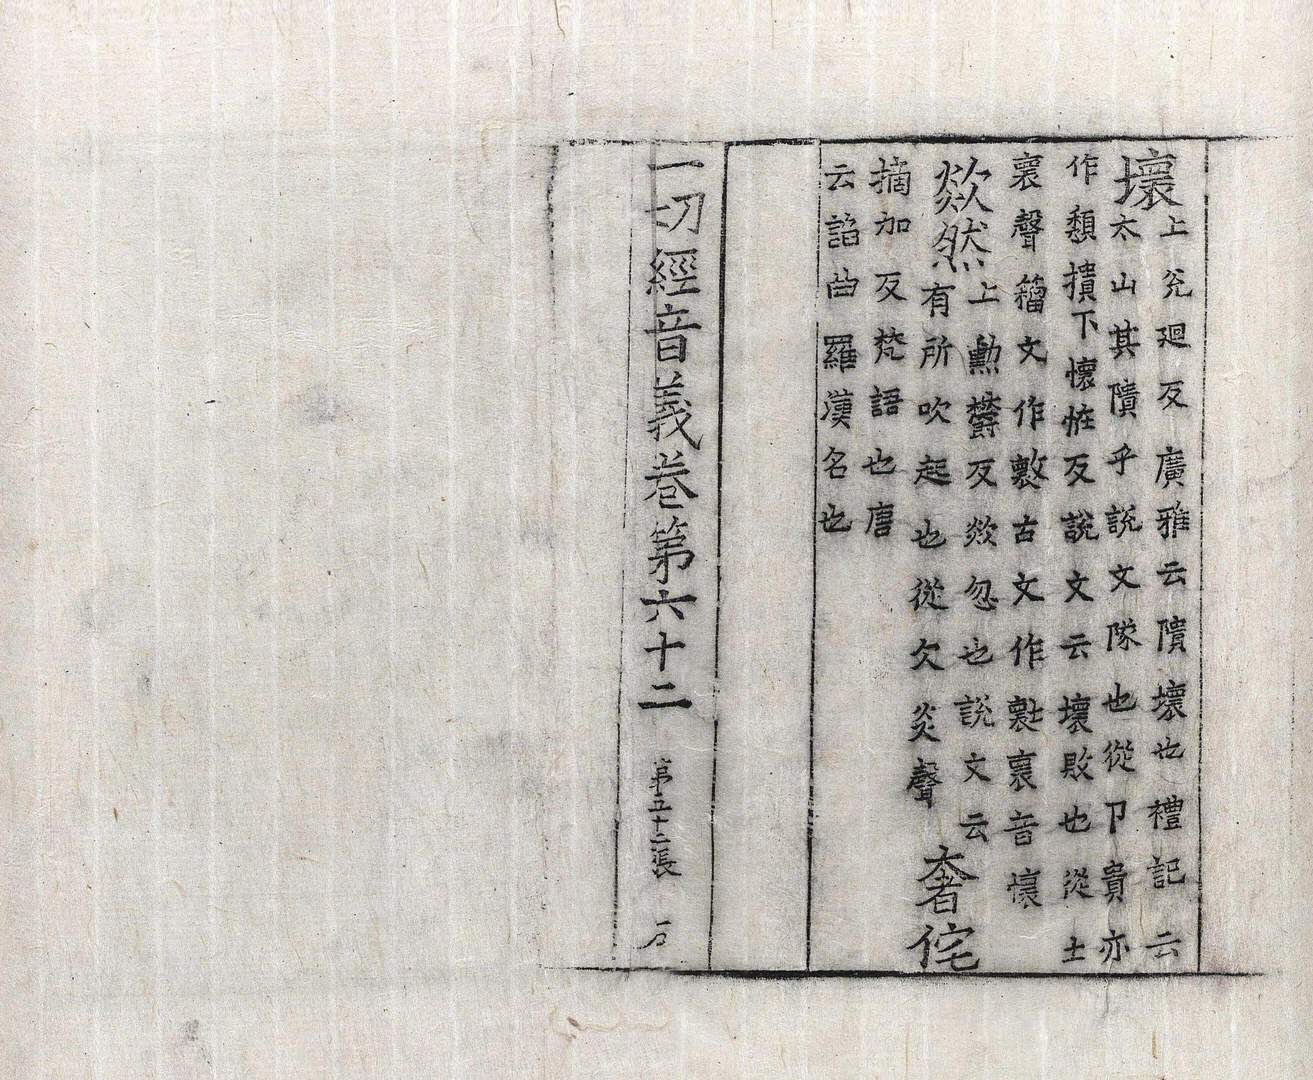 壞上兊廻反廣雅云隤壞也禮記云
太山其隤乎說文隊也從卩貴亦
作頽撌下懷恠反說文云壞敗也從土
褱聲籀文作古文作褱音懷
欻然上勳欝反欻忽也說文云
有所吹起也從欠炎聲奢侘
摘加反梵語也唐
云諂曲羅漢名也
一切經音義卷第六十二 第五十二張